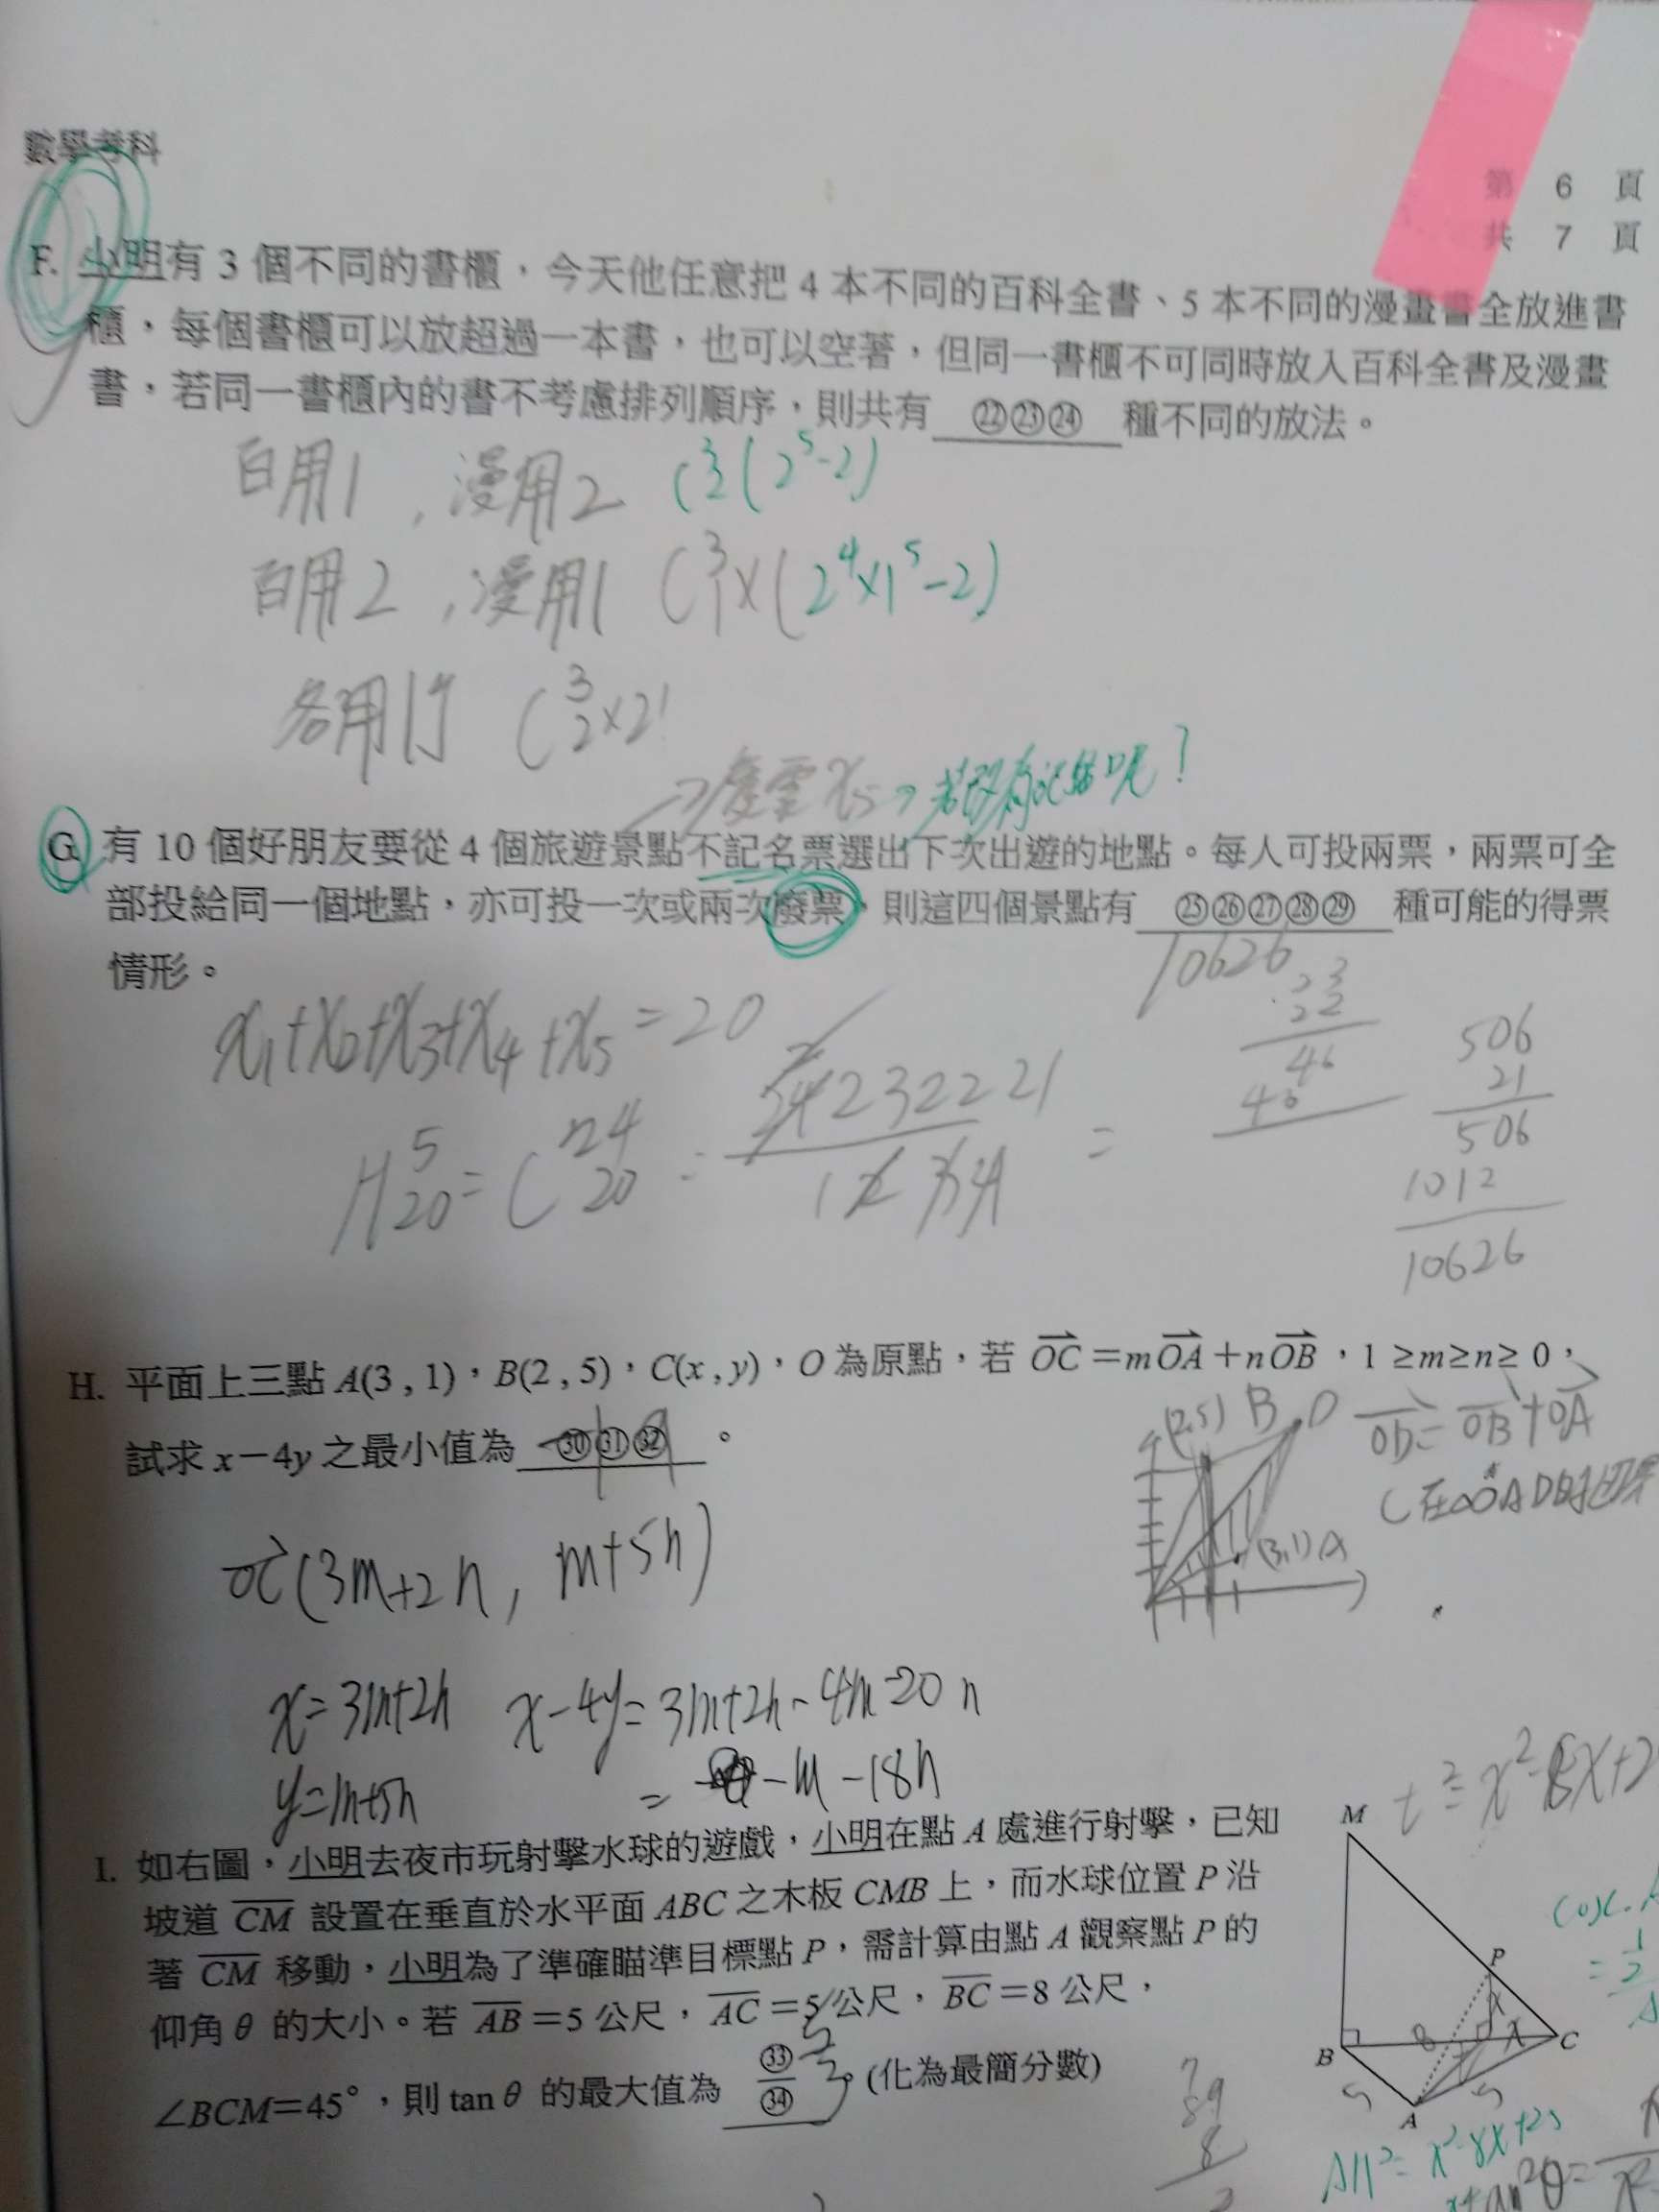 數學考科
第 6 頁
共 7 頁
F. 小明有 3 個不同的書櫃，今天他任意把 4 本不同的百科全書、5 本不同的漫畫書全放進書
櫃，每個書櫃可以放超過一本書，也可以空著，但同一書櫃不可同時放入百科全書及漫畫
書，若同一書櫃內的書不考慮排列順序，則共有 ㉒㉓㉔ 種不同的放法。
百用1，漫用2 C³₂(2⁵-2)
百用2，漫用1 C³₁×(2⁴×1⁵-2)
各用1 C³₂×2!
→廢票 x₅→若改為記名呢？
G. 有 10 個好朋友要從 4 個旅遊景點不記名票選出下次出遊的地點。每人可投兩票，兩票可全
部投給同一個地點，亦可投一次或兩次廢票，則這四個景點有 ㉕㉖㉗㉘㉙ 種可能的得票
10626
情形。
x₁+x₂+x₃+x₄+x₅=20
H⁵₂₀=C²⁴₂₀= 24 23 22 21 / 1 2 3 4 =
23
22
46
46
506
21
506
1012
10626
H. 平面上三點 A(3 , 1)，B(2 , 5)，C(x , y)，O 為原點，若 OC＝mOA＋nOB，1 ≥m≥n≥ 0，
試求 x－4y 之最小值為 ㉚㉛㉜ 。
-19
(2,5) B D OD=OB+OA
(3,1)A
OC(3m+2n, m+5n)
x=3m+2n x-4y=3m+2n-4m-20n
y=m+5n = -m-18n
I. 如右圖，小明去夜市玩射擊水球的遊戲，小明在點 A 處進行射擊，已知
坡道 CM 設置在垂直於水平面 ABC 之木板 CMB 上，而水球位置 P 沿
著 CM 移動，小明為了準確瞄準目標點 P，需計算由點 A 觀察點 P 的
仰角 θ 的大小。若 AB＝5 公尺，AC＝5 公尺，BC＝8 公尺，
∠BCM＝45°，則 tan θ 的最大值為 ㉝/㉞ 。(化為最簡分數)
5
3
M
P
x
B 8 x C
5 5
A
AH²=x²-8x+25